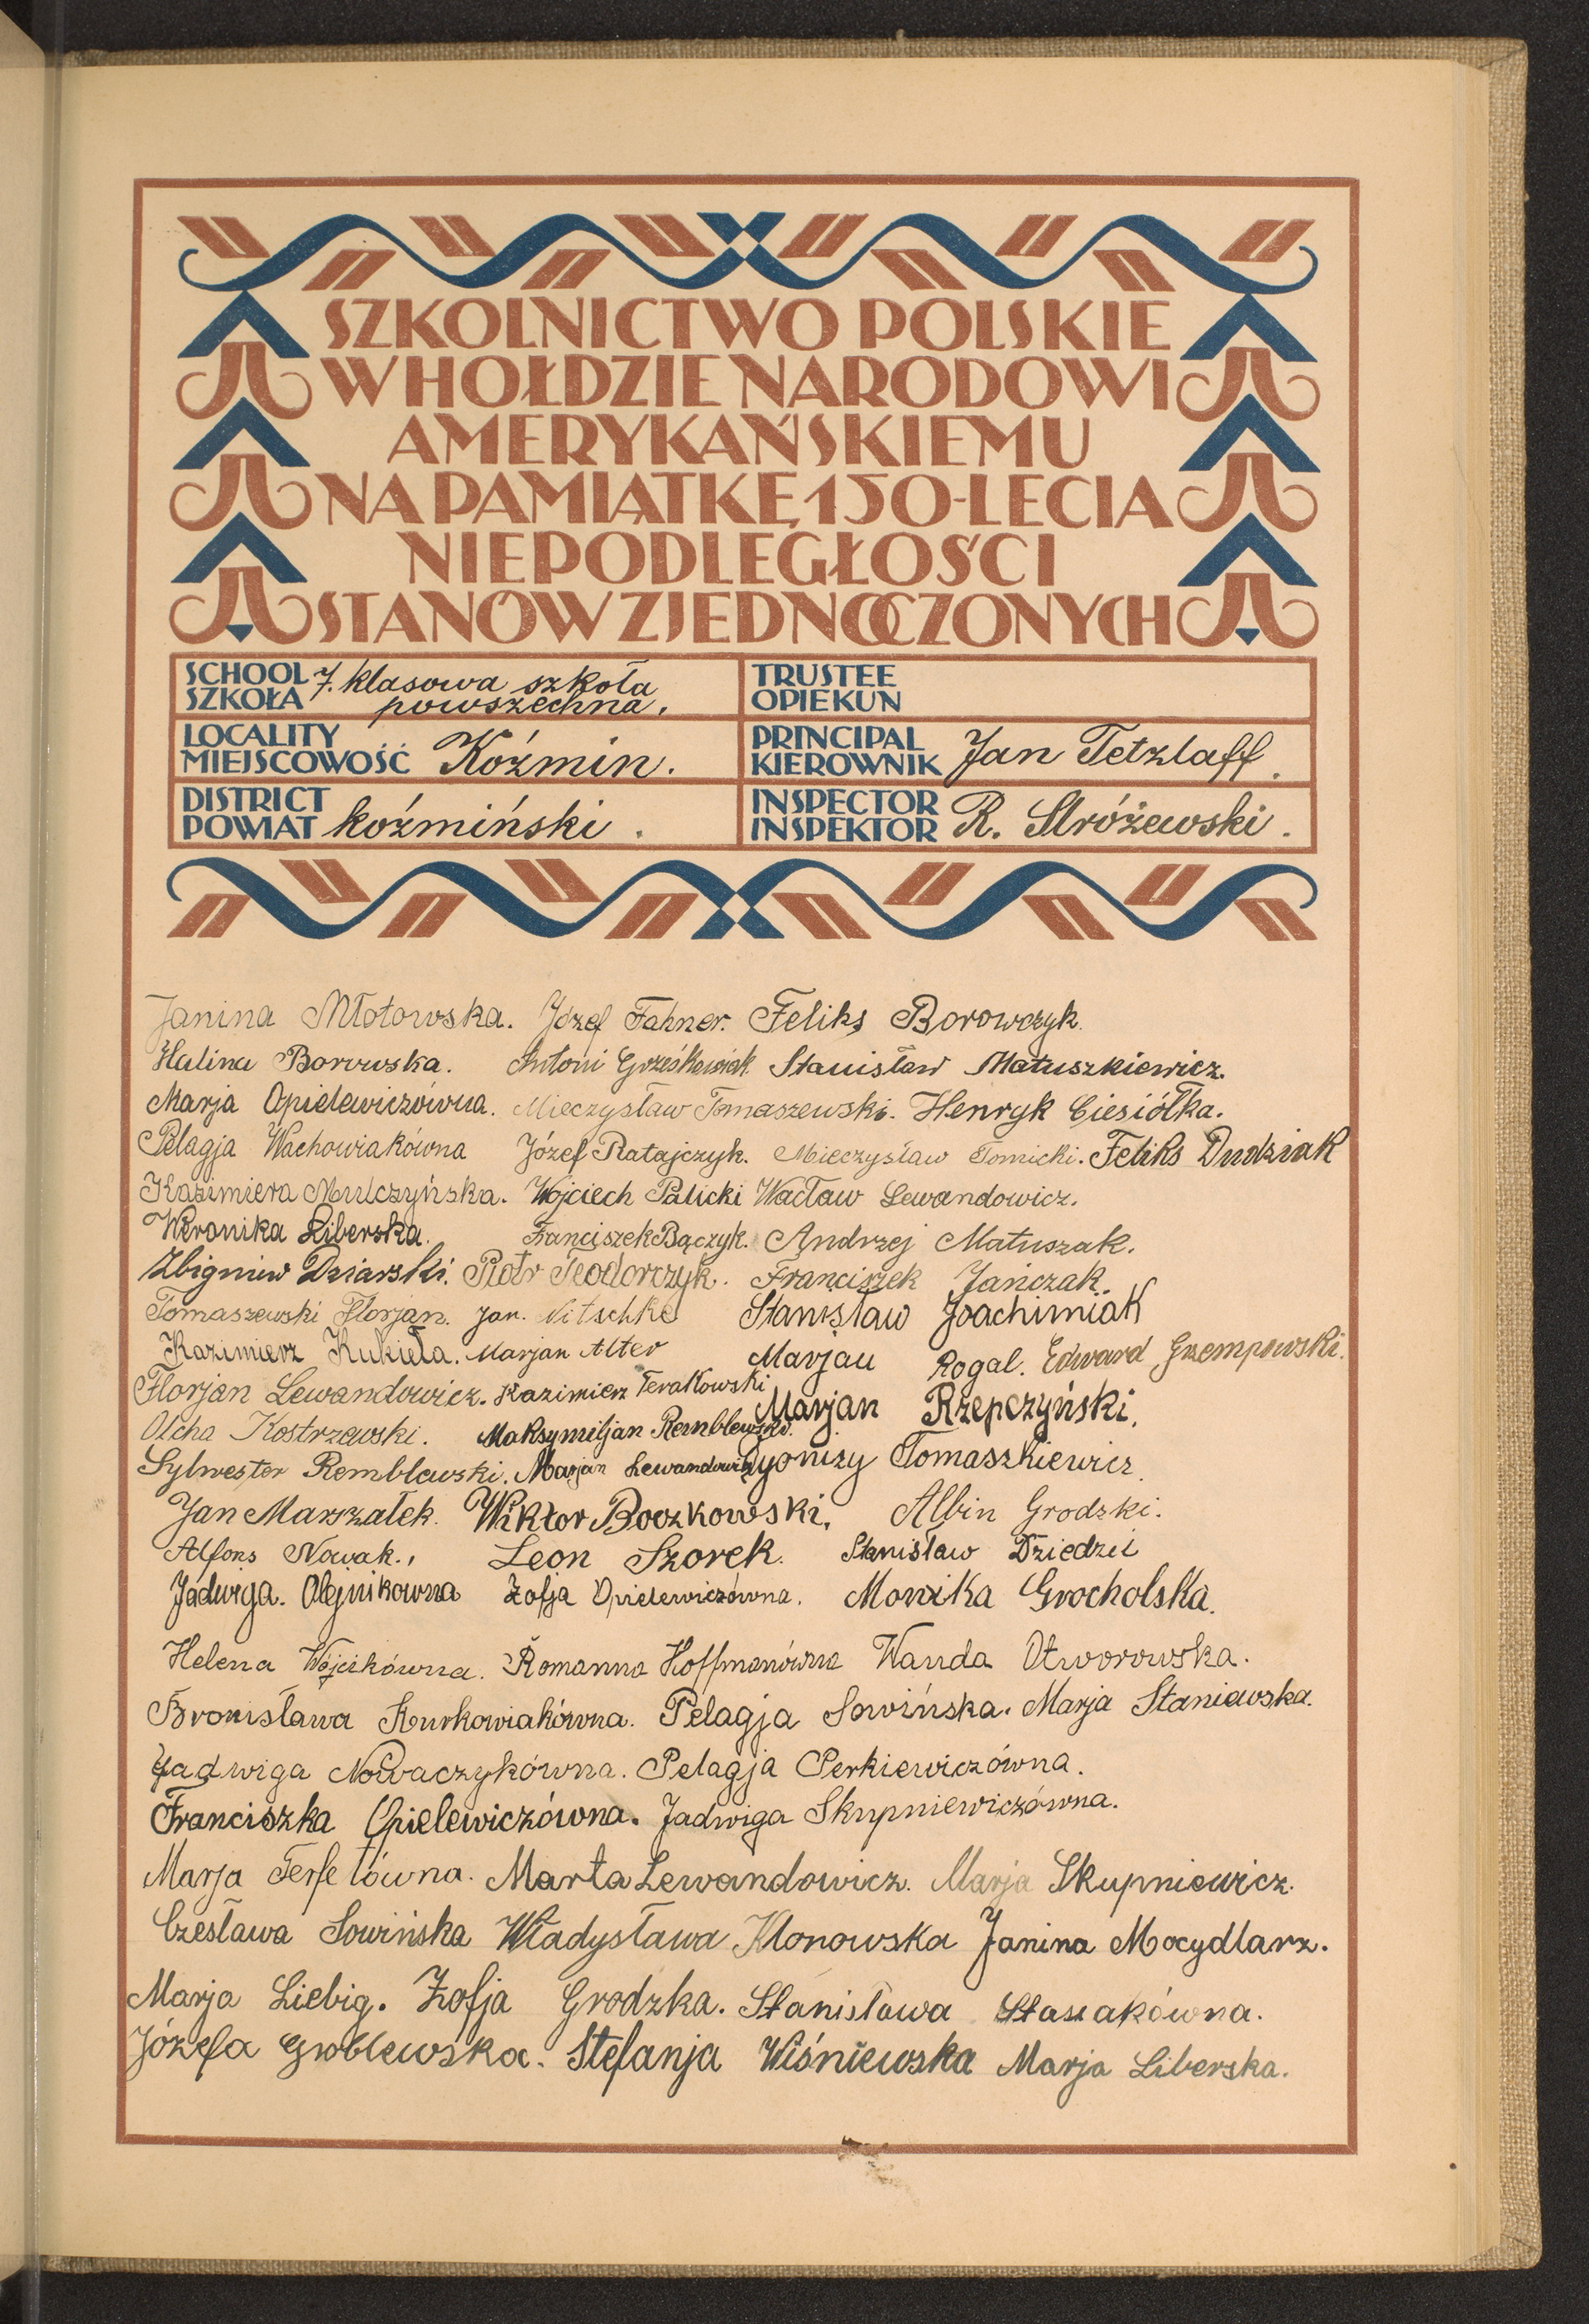 SZKOLNICTWO POLSKIE
W HOŁDZIE NARODOWI
AMERYKAŃSKIEMU
NA PAMIĄTKĘ 150-LECIA
NIEPODLEGŁOŚCI
STANÓW ZJEDNOCZONYCH
SCHOOL
SZKOŁA 7. klasowa szkoła
powszechna.
TRUSTEE
OPIEKUN
LOCALITY
MIEJSCOWOŚĆ Koźmin.
PRINCIPAL
KIEROWNIK Jan Tetzlaff.
DISTRICT
POWIAT koźmiński.
INSPECTOR
INSPEKTOR R. Stróżewski.
Janina Młotowska. Józef Fahner. Feliks Borowczyk.
Halina Borowska. Antoni Grześkowiak. Stanisław Matuszkiewicz.
Marja Opielewiczówna. Mieczysław Tomaszewski. Henryk Ciesiółka.
Pelagja Wachowiakówna Józef Ratajczyk. Mieczysław Tomicki. Feliks Dudziak
Kazimiera Mulczyńska. Wojciech Palicki Wacław Lewandowicz.
Weronika Liberska. Franciszek Bączyk. Andrzej Matuszak.
Zbigniew Dziarski. Piotr Teodorczyk. Franciszek Jańczak.
Tomaszewski Florjan. Jan. Nitschke Stanisław Joachimiak
Kazimierz Kukieła. Marjan Alter Marjan Rogal. Edward Grempowski.
Florjan Lewandowicz. Kazimierz Terakowski
Marjan Rzepczyński.
Kostrzewski. Maksymiljan Remblewski.
Sylwester Remblewski. Marjan Lewandowicz Dyonizy Tomaszkiewicz.
Jan Marszałek. Wiktor Boczkowski. Albin Grodzki.
Alfons Nowak., Leon Szorek. Stanisław Dziedzic
Jadwiga. Olejnikowna Zofja Opielewiczówna. Monika Grocholska.
Helena Wójcikówna. Romanna Hoffmanówna Wanda Otworowska.
Bronisława Kurkowiakówna. Pelagja Sowińska. Marja Staniewska.
Jadwiga Nowaczykówna. Pelagja Perkiewiczówna.
Franciszka Opielewiczówna. Jadwiga Skupniewiczówna.
Marja Terfelówna. Marta Lewandowicz. Marja Skupniewicz.
Czesława Sowińska Władysława Klonowska Janina Mocydlarz.
Marja Liebig. Zofja Grodzka. Stanisława Stasiakówna.
Józefa Groblewska. Stefanja Wiśniewska Marja Liberska.